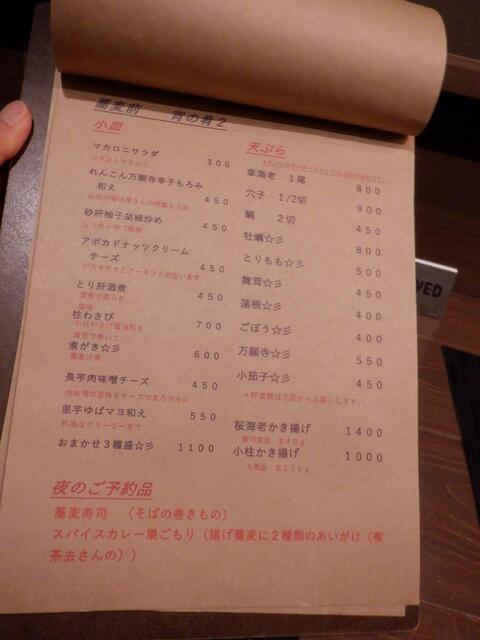 蕎麦前　宵の肴２
小皿
マカロニサラダ 300
ツイストマカロニ
れんこん万願寺辛子もろみ
和え 450
砂肝柚子胡椒炒め 450
アボカドナッツクリーム
チーズ 450
ピスタチオとアーモンドが合います
とり肝酒煮 450
塩味
柱わさび 700
小柱わさび醤油和え
海苔で巻いて
煮がき☆彡 600
蕎麦汁煮
長芋肉味噌チーズ 450
肉味噌の旨味をチーズでまろやかに
里芋ゆばマヨ和え 550
和風なクリーミーさで
おまかせ３種盛☆彡 1100
天ぷら
車海老　１尾 800
穴子　1/2切 900
鯛　２切 450
牡蠣☆彡 800
とりもも☆彡 500
舞茸☆彡 450
蓮根☆彡 400
ごぼう☆彡 400
万願寺☆彡 550
小茄子☆彡 450
＊野菜類は２個からお願いします。
桜海老かき揚げ 1400
駿河湾産　生40ｇ
小柱かき揚げ 1000
人気品
夜のご予約品
蕎麦寿司　（そばの巻きもの）
スパイスカレー巣ごもり（揚げ蕎麦に２種類のあいがけ（喫
茶去さんの））
VED